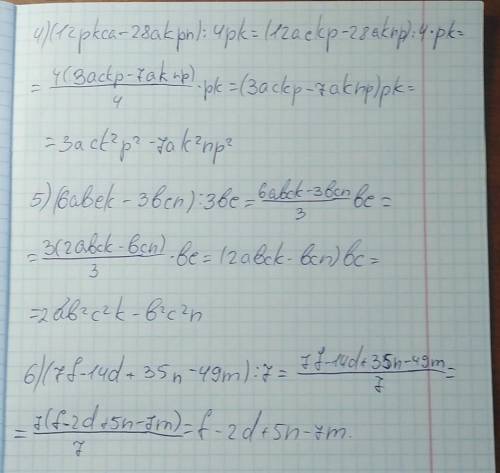 4)(12pkca-28akpn):4pk=(12ackp-28aknp):4·pk=
=4(3ackp-7aknp)/4·pk=(3ackp-7aknp)pk=
=3ack²p²-7ak²np²
5)(6abck-3bcn):3bc=6abck-3bcn/3 bc=
=3(2abck-bcn)/3·bc=(2abck-bcn)bc=
=2ab²c²k-b²c²n
6)(7f-14d+35n-49m):7=7f-14d+35n-49m/7=
=7(f-2d+5n-7m)/7=f-2d+5n-7m.